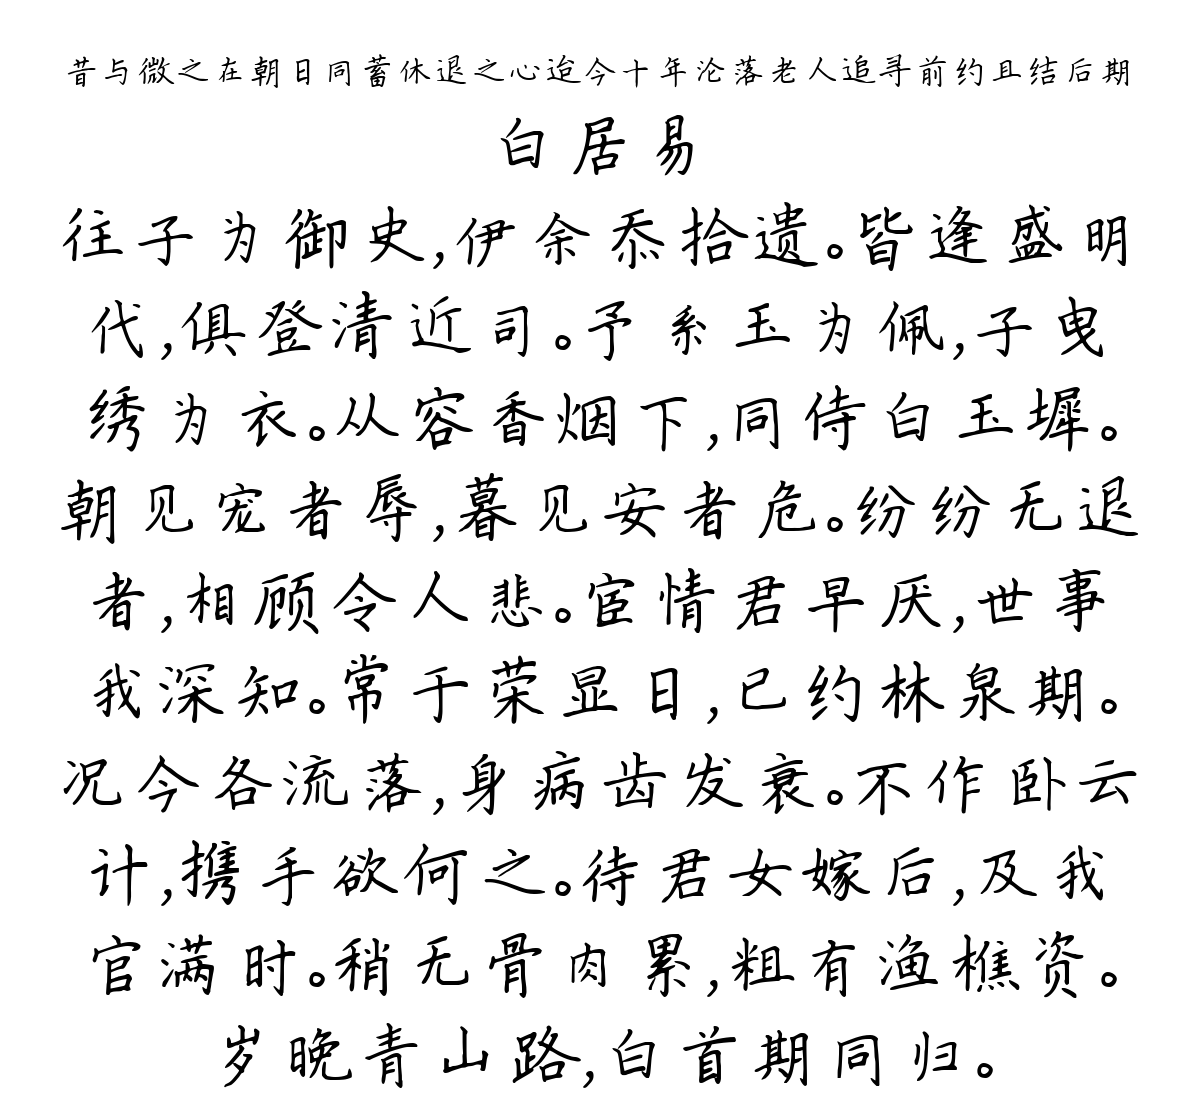 昔与微之在朝日同蓄休退之心迨今十年沦落老人追寻前约且结后期
白居易
往子为御史,伊余忝拾遗。皆逢盛明
代,俱登清近司。予系玉为佩,子曳
绣为衣。从容香烟下,同侍白玉墀。
朝见宠者辱,暮见安者危。纷纷无退
者,相顾令人悲。宦情君早厌,世事
我深知。常于荣显日,已约林泉期。
况今各流落,身病齿发衰。不作卧云
计,携手欲何之。待君女嫁后,及我
官满时。稍无骨肉累,粗有渔樵资。
岁晚青山路,白首期同归。